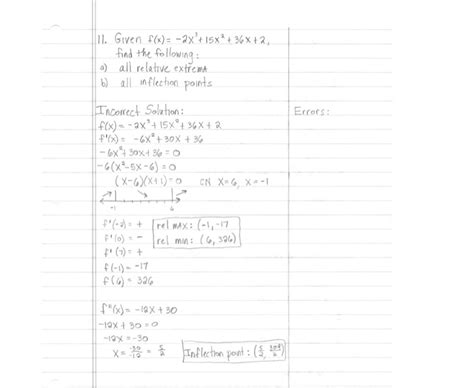 11. Given f(x) = -2x³ + 15x² + 36x + 2,
find the following:
a) all relative extrema
b) all inflection points
Incorrect Solution:
Errors:
f(x) = -2x³ + 15x² + 36x + 2
f'(x) = -6x² + 30x + 36
-6x² + 30x + 36 = 0
-6(x² - 5x - 6) = 0
(x-6)(x+1) = 0 CN x=6, x=-1
-1 6
f'(-2) = +
f'(0) = -
f'(7) = +
rel max: (-1, -17
rel min: (6, 326)
f(-1) = -17
f(6) = 326
f"(x) = -12x + 30
-12x + 30 = 0
-12x = -30
x = -30/-12 = 5/2 Inflection point: